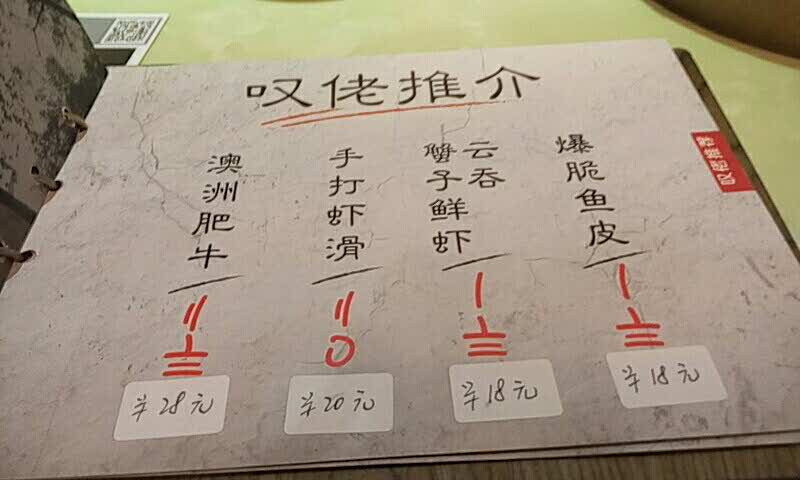 叹佬推介
澳洲肥牛
手打虾滑
蟹子鲜虾
云吞
爆脆鱼皮
〢〨
〢〇
〡〨
〡〨
半28元
半20元
半18元
半18元
叹佬推荐